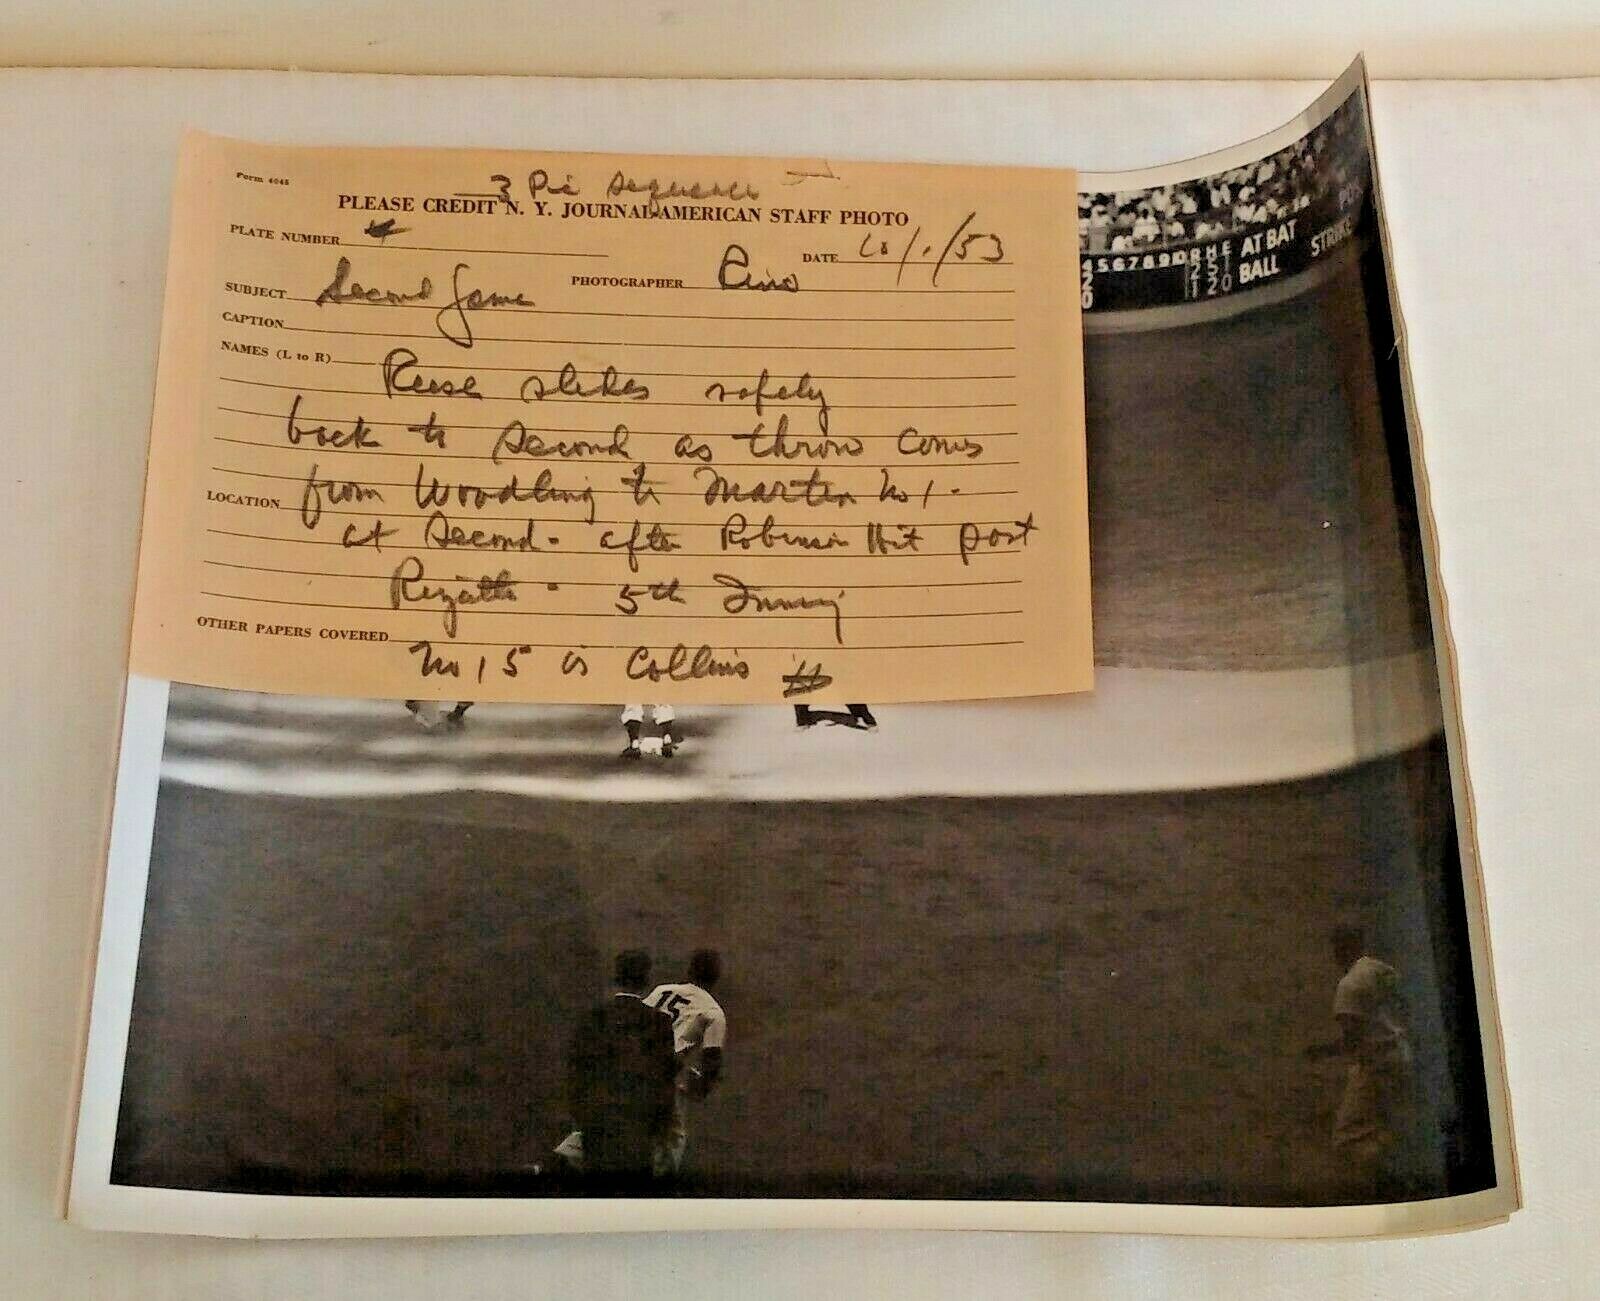 Form 4045
3 Pic Sequence
PLEASE CREDIT N. Y. JOURNAL-AMERICAN STAFF PHOTO
PLATE NUMBER 4
DATE 10/1/53
SUBJECT Second Game
PHOTOGRAPHER Rino
CAPTION
NAMES (L to R)
Reese slides safely
back to second as throw comes
from Woodling to Martin No 1 -
LOCATION
at Second - after Robinson Hit past
Rizutto - 5th Inning
OTHER PAPERS COVERED
No 15 is Collins
4 5 6 7 8 9 10 R H E AT BAT
2 2 5 1 BALL STRIKE
0 1 2 0
15